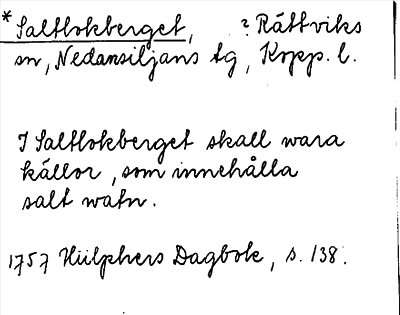 *Saltlokberget, ? Rättviks
sn, Nedansiljans tg, Kopp. l.
I Saltlokberget skall wara
källor, som innehålla
salt watn.
1757 Hülphers Dagbok, s. 138.